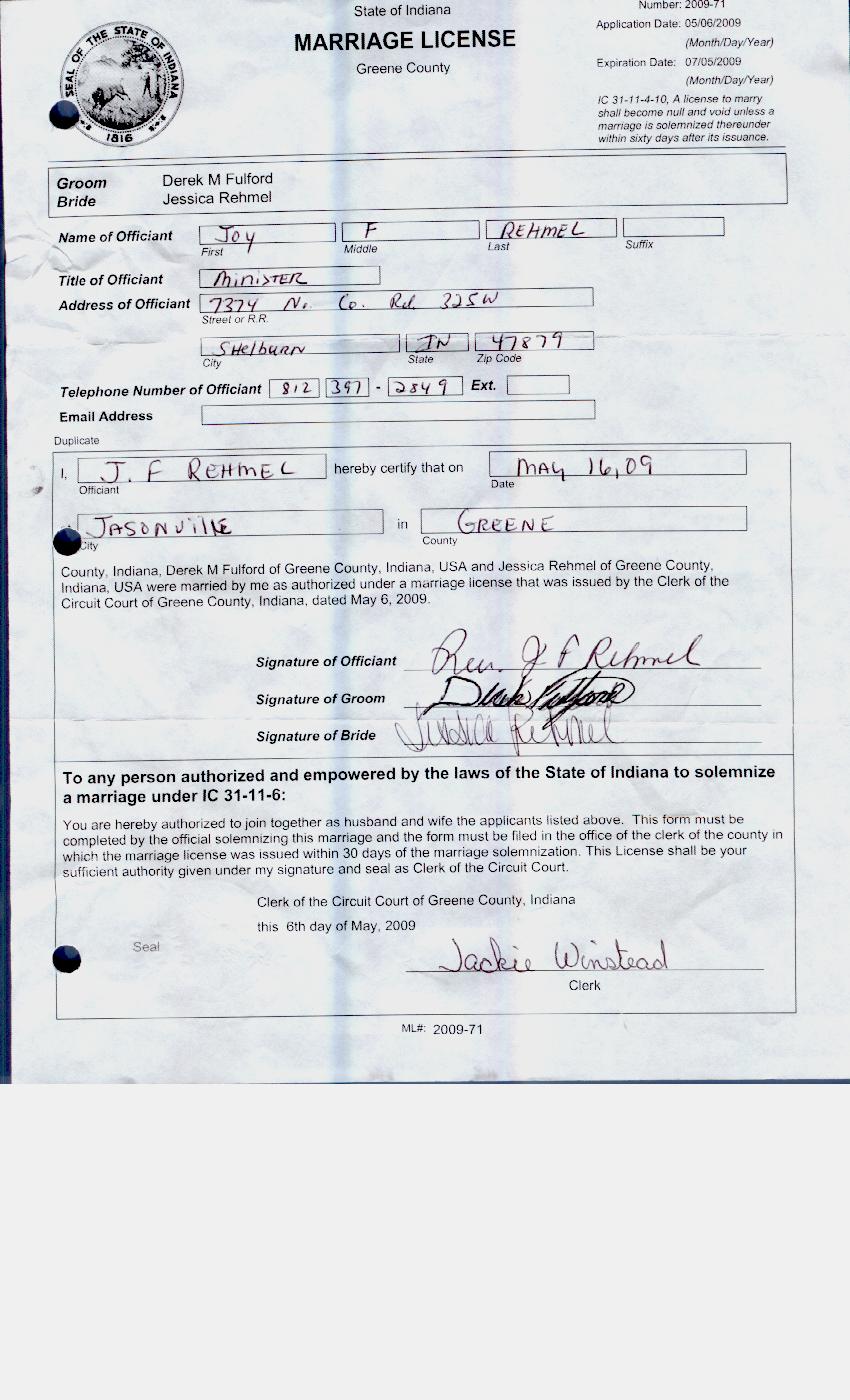 State of Indiana
MARRIAGE LICENSE
Greene County
SEAL OF THE STATE OF INDIANA
1816
Number: 2009-71
Application Date: 05/06/2009
(Month/Day/Year)
Expiration Date: 07/05/2009
(Month/Day/Year)
IC 31-11-4-10, A license to marry
shall become null and void unless a
marriage is solemnized thereunder
within sixty days after its issuance.
Groom Derek M Fulford
Bride Jessica Rehmel
Name of Officiant Joy F REHMEL
First Middle Last Suffix
Title of Officiant MINISTER
Address of Officiant 7374 N. Co. Rd 325W
Street or R.R.
SHelBURN IN 47879
City State Zip Code
Telephone Number of Officiant 812 397 - 2849 Ext.
Email Address
Duplicate
I, J. F REHMEL hereby certify that on MAY 16, 09
Officiant Date
JASONVillE in GREENE
City County
County, Indiana, Derek M Fulford of Greene County, Indiana, USA and Jessica Rehmel of Greene County,
Indiana, USA were married by me as authorized under a marriage license that was issued by the Clerk of the
Circuit Court of Greene County, Indiana, dated May 6, 2009.
Signature of Officiant Rev. J F Rehmel
Signature of Groom Derek Fulford
Signature of Bride Jessica Rehmel
To any person authorized and empowered by the laws of the State of Indiana to solemnize
a marriage under IC 31-11-6:
You are hereby authorized to join together as husband and wife the applicants listed above. This form must be
completed by the official solemnizing this marriage and the form must be filed in the office of the clerk of the county in
which the marriage license was issued within 30 days of the marriage solemnization. This License shall be your
sufficient authority given under my signature and seal as Clerk of the Circuit Court.
Clerk of the Circuit Court of Greene County, Indiana
this 6th day of May, 2009
Seal
Jackie Winstead
Clerk
ML#: 2009-71